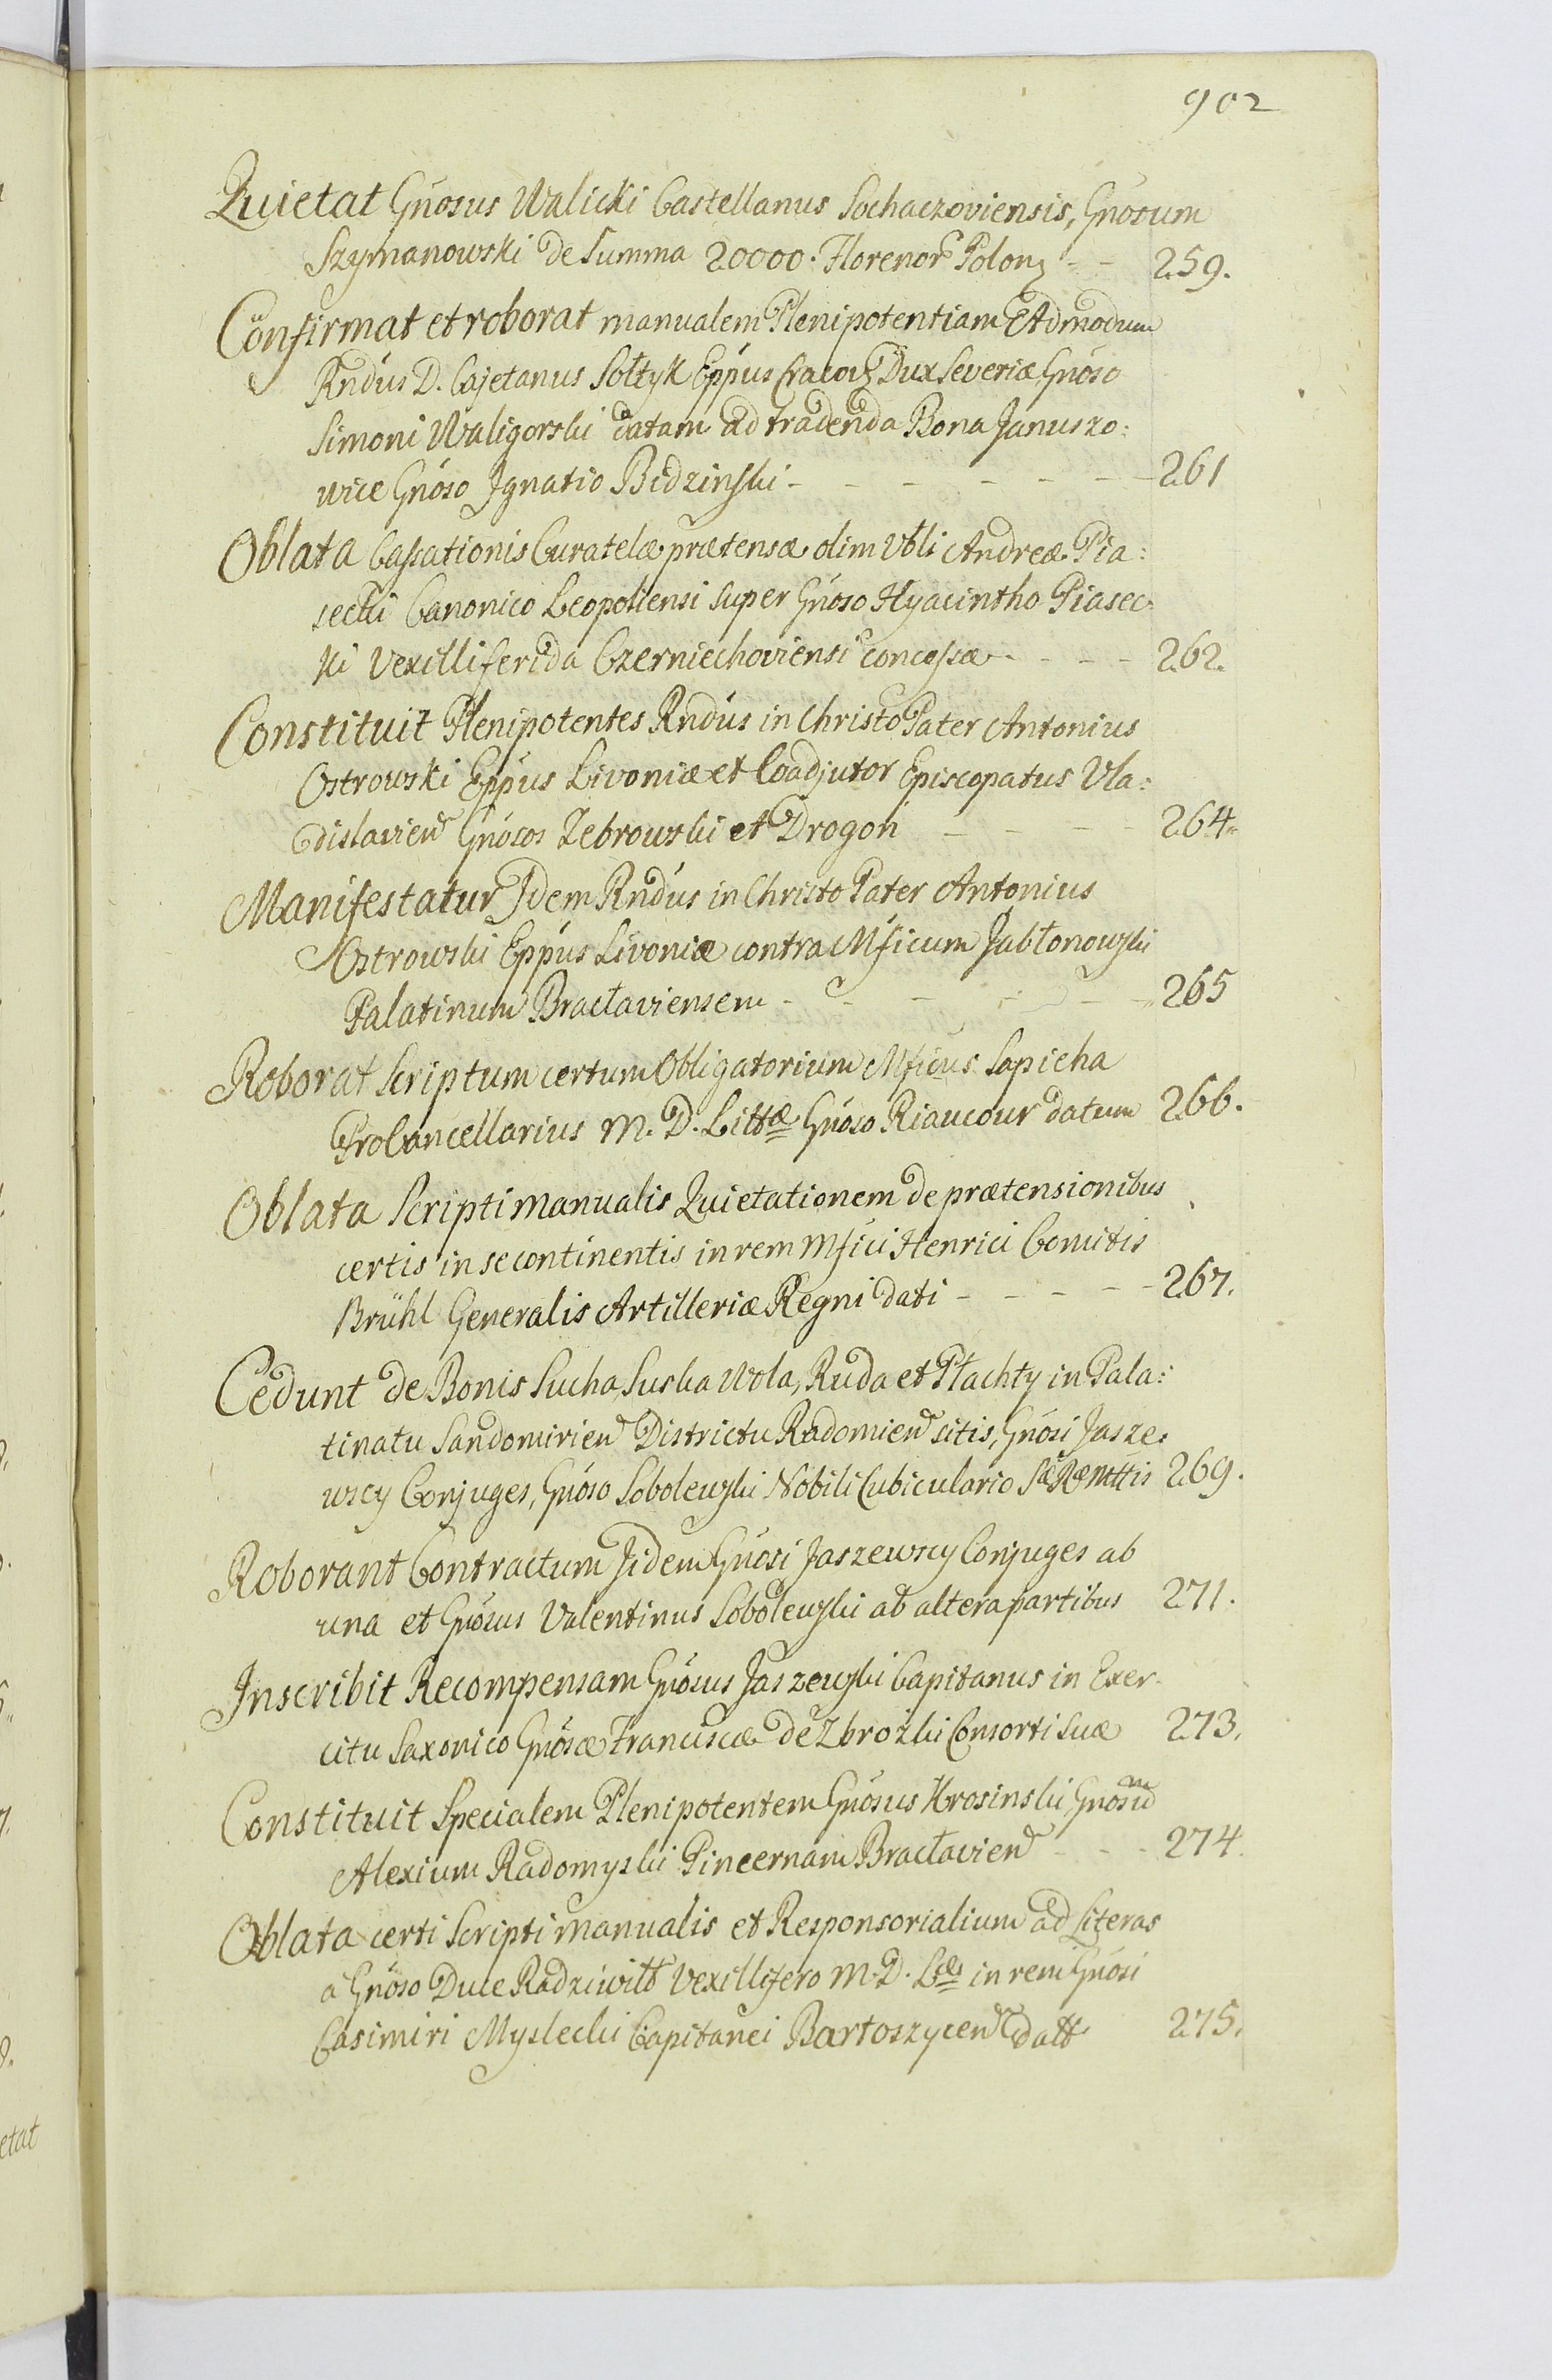 902
Quietat Gnosus Walicki Castellanus Sochaczoviensis, Gnosum
Szymanowski de Summa 20000. Florenor Polon - - 259.
Confirmat et roborat manualem Plenipotentiam Admodum
Rndus D. Cajetanus Sołtyk Eppus Cracov Dux Severiæ, Gnoso
Simoni Waligorski datam ad tradenda Bona Januszo:
wice Gnoso Ignatio Bidzinski - - - - - - 261
Oblata Cassationis Curatelæ prætensæ olim Vbli Andreæ Pia:
secki Canonico Leopoliensi super Gnoso Hyacintho Piasec
ki Vexilliferida Czerniechoviensi concessæ - - - - 262.
Constituit Plenipotentes Rndus in Christo Pater Antonius
Ostrowski Eppus Livoniæ et Coadjutor Episcopatus Vla:
dislavien Gnosos Zebrowski et Drogon - - - - 264.
Manifestatur Idem Rndus in Christo Pater Antonius
Ostrowski Eppus Livoniæ contra Mficum Jabłonowski
Palatinum Bracłaviensem - - - - - - 265
Roborat Scriptum certum Obligatorium Mficus Sapieha
ProCancellarius M. D. Littæ Gnoso Riaucour datum 266.
Oblata Scripti manualis Quietationem de prætensionibus
certis in se continentis in rem Mfici Henrici Comitis
Brühl Generalis Artilleriæ Regni dati - - - - - 267.
Cedunt de Bonis Sucha, Suska Wola, Ruda et Płachty in Pala:
tinatu Sandomirien Districtu Radomien sitis, Gnosi Jasze:
wscy Conjuges, Gnoso Sobolewski Nobili Cubiculario Sæ Ræ Mttis 269.
Roborant Contractum Iidem Gnosi Jaszewscy Conjuges ab
una et Gnosus Valentinus Sobolewski ab altera partibus 271.
Inscribit Recompensam Gnosus Jaszewski Capitanus in Exer
citu Saxonico Gnosæ Franciscæ de Zbrozki Consorti Suæ 273.
Constituit Specialem Plenipotentem Gnosus Krosinski, Gnosum
Alexium Radomyski Pincernam Bracłavien - - - 274.
Oblata certi Scripti manualis et Responsorialium ad Literas
a Gnoso Duce Radziwiłł Vexillifero M. D. Læs in rem Gnosi
Casimiri Myslecki Capitanei Bartoszycen datt 275.
etat